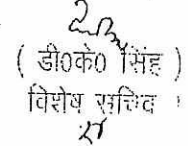 ( डी०के० सिंह )
विशेष सचिव ।